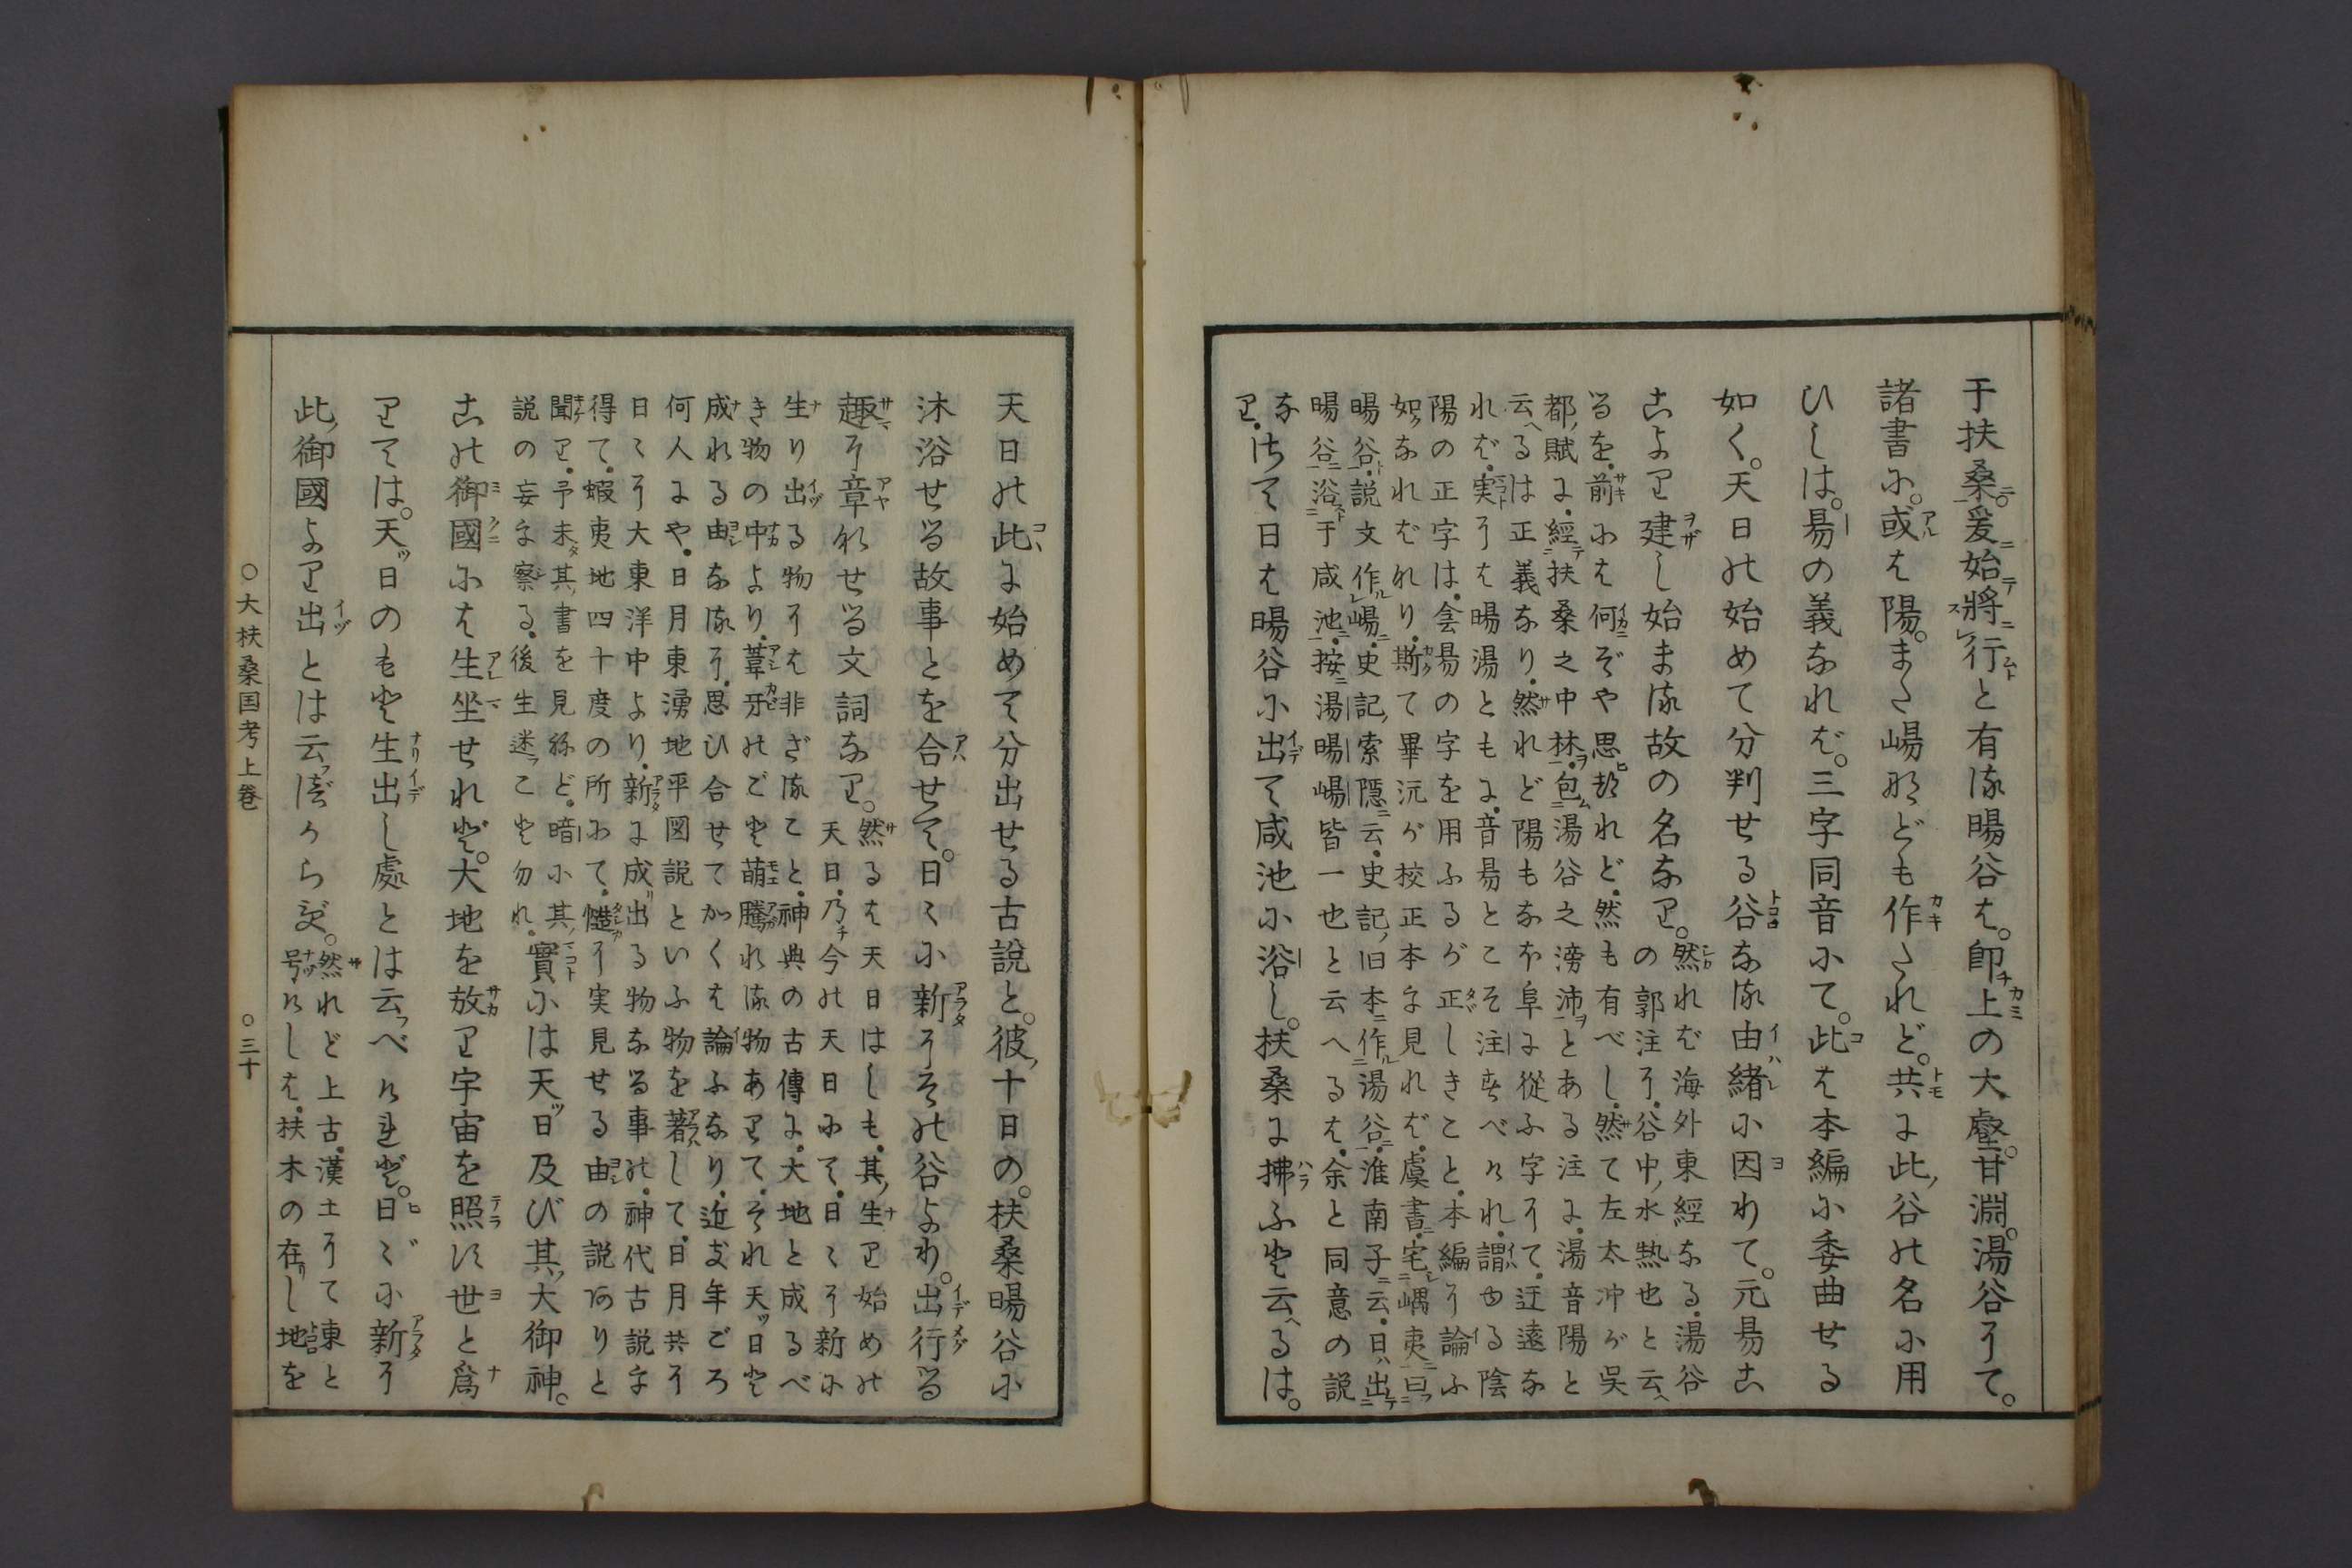 于扶桑。爰始將行と有る暘谷は。卽上の大壑。甘淵。湯谷にて。
諸書に。或は陽。また崵なども作たれど。共に此谷の名に用
ひしは。昜の義なれば。三字同音にて。此は本編に委曲せる
如く。天日の始めて分判せる谷なる由緒に因りて。元昜こ
こより建し始まる故の名なり。
然れば海外東經なる。湯谷
の郭注に。谷中水熱也と云へ
るを。前には何ぞや思ひれど。然も有べし。然て左太冲が呉
都賦に。經扶桑之中林。包湯谷之滂沛とある注に。湯音陽と
云へるは正義なり。然れど陽もなほ阜に從ふ字にて。迂遠な
れば。実には暘湯ともに。音昜とこそ注すべけれ。謂ゆる陰
陽の正字は。侌昜の字を用ふるが正しきこと。本編に論ふ
如くなればなり。斯て畢沅が校正本に見れば。虞書宅嵎夷曰
暘谷。説文作崵。史記索隱云。史記旧本作湯谷。淮南子云。日出
暘谷浴于咸池。按湯暘崵皆一也と云へるは。余と同意の説
なり。
さて日は暘谷に出て咸池に浴し。扶桑に拂ふと云へるは。
天日の此に始めて分出せる古説と。彼十日の。扶桑暘谷に
沐浴せる故事とを合せて。日々に新にその谷より。出行る
趣に章なせる文詞なり。
然るは天日はしも。其生り始めの
天日。乃チ今の天日にて。日々に新に
生り出る物には非ざること。神典の古傳に。大地と成るべ
き物の中より。葦牙のごと萌騰れる物ありて。それ天ッ日と
成れる由なるに。思ひ合せてかくは論ふなり。近き年ごろ
何人にや。日月東湧地平図説といふ物を著して。日月共に
日々に大東洋中より。新に成り出る物なる事の。神代古説を
得て。蝦夷地四十度の所にて。慥に実見せる由の説ありと
聞り。予未其書を見ねど。暗に其
説の妄を察る。後生迷ふこと勿れ。
實には天ッ日及び其大御神。
この御國には生坐せれど。大地を放り宇宙を照す世と爲
りては。天ッ日のもと生出し處とは云ふべけれど。日々に新に
此御國より出とは云ふべからず。
然れど上古。漢土にて東と
号けしは。扶木の在りし地を
○大扶桑国考上巻
○三十